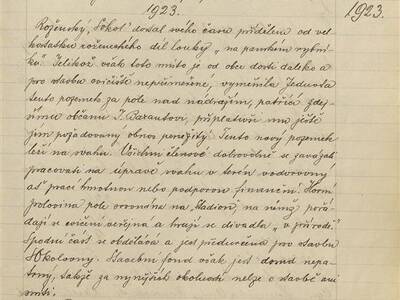 1923.
1923.
Roženský „Sokol" dostal svého času přídělem od vel-
kostatku roženeckého díl louky „na panském rybní-
ku." Jelikož však toto místo je od obce dosti daleko a
pro stavbu cvičiště nepřiměřené, vyměnila Jednota
tento pozemek za pole nad nádražím, patřící zdej-
šímu občanu F. Baxantovi, připlativši mu ještě
jím požadovaný obnos peněžitý. Tento nový pozemek
leží na svahu. Všichni členové dobrovolně se zavázali
pracovati na úpravě svahu v terén vodorovný
ať prací hmotnou nebo podporou finanční. Horní
polovina pole srovnána na „stadion", na němž pořá-
dají se cvičení veřejná a hrají se divadla „v přírodě."
Spodní část se obdělává a jest předurčena pro stavbu
Sokolovny. Stavební fond však jest dosud nepa-
trný, takže za nynějších okolností nelze o stavbě ani